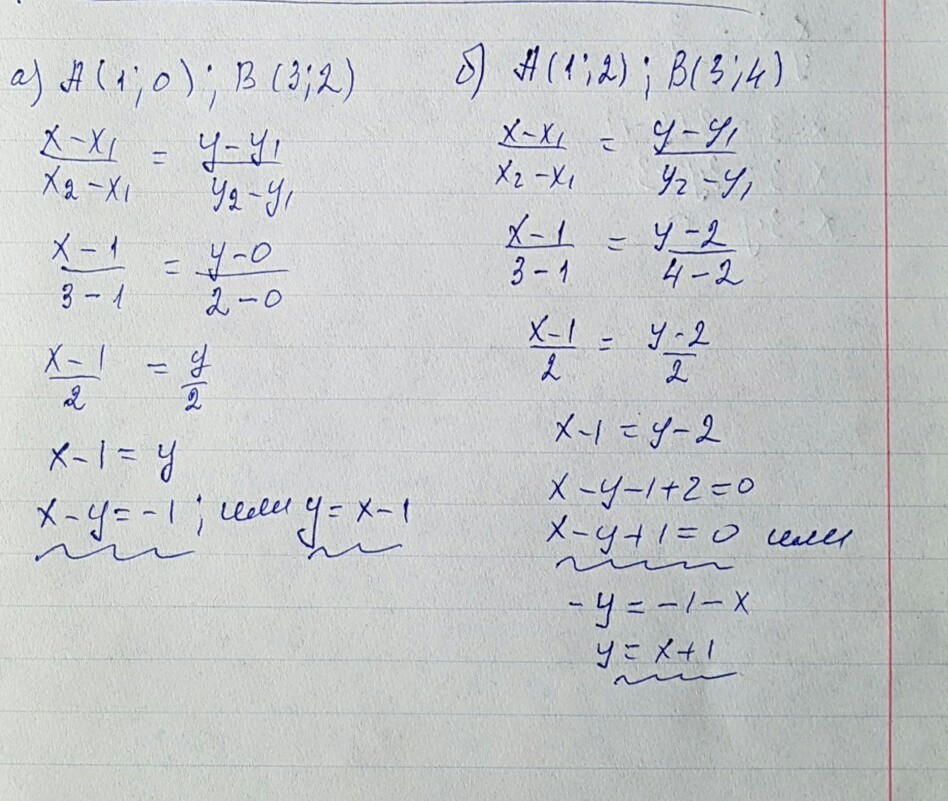 а) A(1;0); B(3;2)
x-x₁/x₂-x₁ = y-y₁/y₂-y₁
x-1/3-1 = y-0/2-0
x-1/2 = y/2
x-1=y
x-y=-1; или y=x-1
б) A(1;2); B(3;4)
x-x₁/x₂-x₁ = y-y₁/y₂-y₁
x-1/3-1 = y-2/4-2
x-1/2 = y-2/2
x-1=y-2
x-y-1+2=0
x-y+1=0 или
-y=-1-x
y=x+1